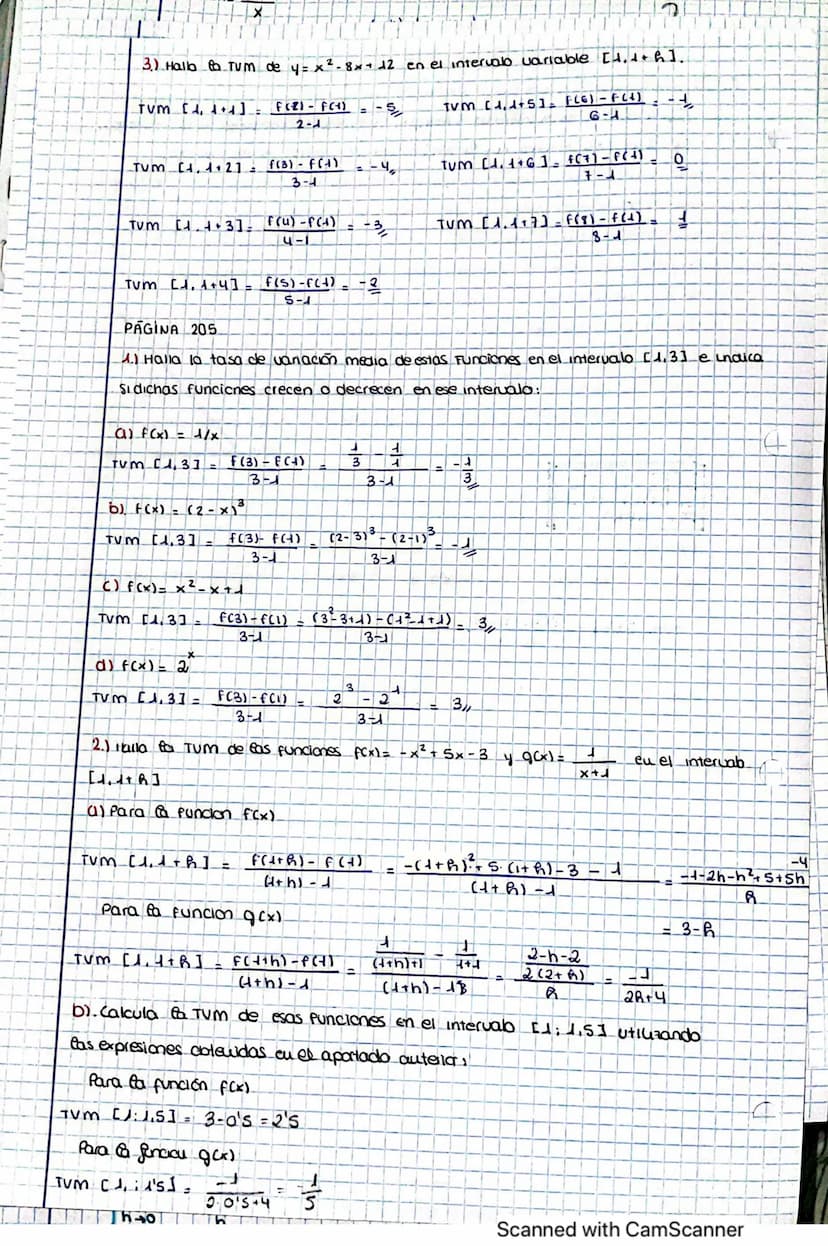 x
3.) Halla la TVM de y = x² - 8x + 12 en el intervalo variable [1, 1 + h].
TVM [1, 1+1] = f(2) - f(1) / 2-1 = -5 TVM [1, 1+5] = f(6) - f(1) / 6-1 = -1
TVM [1, 1+2] = f(3) - f(1) / 3-1 = -4 TVM [1, 1+6] = f(7) - f(1) / 7-1 = 0
TVM [1, 1+3] = f(4) - f(1) / 4-1 = -3 TVM [1, 1+7] = f(8) - f(1) / 8-1 = 1
TVM [1, 1+4] = f(5) - f(1) / 5-1 = -2
PÁGINA 205
1.) Halla la tasa de variación media de estas funciones en el intervalo [1,3] e indica
si dichas funciones crecen o decrecen en ese intervalo:
a) f(x) = 1/x
TVM [1,3] = f(3) - f(1) / 3-1 = 1/3 - 1/1 / 3-1 = -1/3
b). f(x) = (2-x)³
TVM [1,3] = f(3) - f(1) / 3-1 = (2-3)³ - (2-1)³ / 3-1 = -1
c) f(x) = x² - x + 1
TVM [1,3] = f(3) - f(1) / 3-1 = (3²-3+1) - (1²-1+1) / 3-1 = 3
d) f(x) = 2ˣ
TVM [1,3] = f(3) - f(1) / 3-1 = 2³ - 2¹ / 3-1 = 3
2.) Halla la TVM de las funciones f(x) = -x² + 5x - 3 y g(x) = 1 / x+1 en el intervalo
[1, 1+h]
a) Para la funcion f(x)
TVM [1, 1+h] = f(1+h) - f(1) / (1+h) - 1 = -(1+h)² + 5·(1+h) - 3 - 1 / (1+h) - 1 = -1-2h-h²+5+5h-4 / h
Para la funcion g(x) = 3-h
TVM [1, 1+h] = f(1+h) - f(1) / (1+h) - 1 = 1/(1+h)+1 - 1/1+1 / (1+h) - 1 = 2-h-2 / 2(2+h) / h = -1 / 2h+4
b). Calcula la TVM de esas funciones en el intervalo [1; 1,5] utilizando
las expresiones obtenidas en el apartado anterior:
Para la función f(x)
TVM [1; 1,5] = 3-0'5 = 2'5
Para la funcion g(x)
TVM [1, ; 1'5] = -1 / 2·0'5+4 = -1/5
h→0 h
Scanned with CamScanner